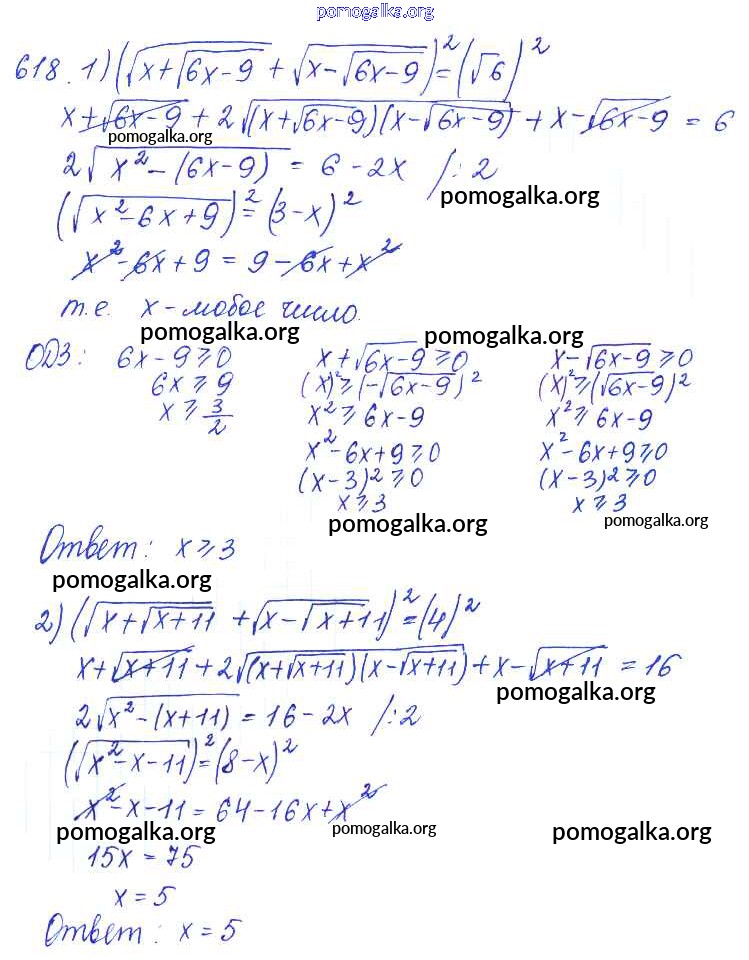 pomogalka.org
618. 1) (√(x+√(6x-9)) + √(x-√(6x-9)))² = (√6)²
x+√(6x-9) + 2√((x+√(6x-9))(x-√(6x-9))) + x-√(6x-9) = 6
pomogalka.org
2√(x²-(6x-9)) = 6-2x /:2
pomogalka.org
(√(x²-6x+9))² = (3-x)²
x²-6x+9 = 9-6x+x²
т.е. x-любое число.
pomogalka.org pomogalka.org
ОДЗ: 6x-9⩾0 x+√(6x-9)⩾0 x-√(6x-9)⩾0
6x⩾9 (x)²⩾(-√(6x-9))² (x)²⩾(√(6x-9))²
x⩾3/2 x²⩾6x-9 x²⩾6x-9
x²-6x+9⩾0 x²-6x+9⩾0
(x-3)²⩾0 (x-3)²⩾0
x⩾3 x⩾3
pomogalka.org pomogalka.org
Ответ: x⩾3
pomogalka.org
2) (√(x+√(x+11)) + √(x-√(x+11)))² = (4)²
x+√(x+11) + 2√((x+√(x+11))(x-√(x+11))) + x-√(x+11) = 16
pomogalka.org
2√(x²-(x+11)) = 16-2x /:2
(√(x²-x-11))² = (8-x)²
x²-x-11 = 64-16x+x²
pomogalka.org pomogalka.org pomogalka.org
15x = 75
x = 5
Ответ: x = 5